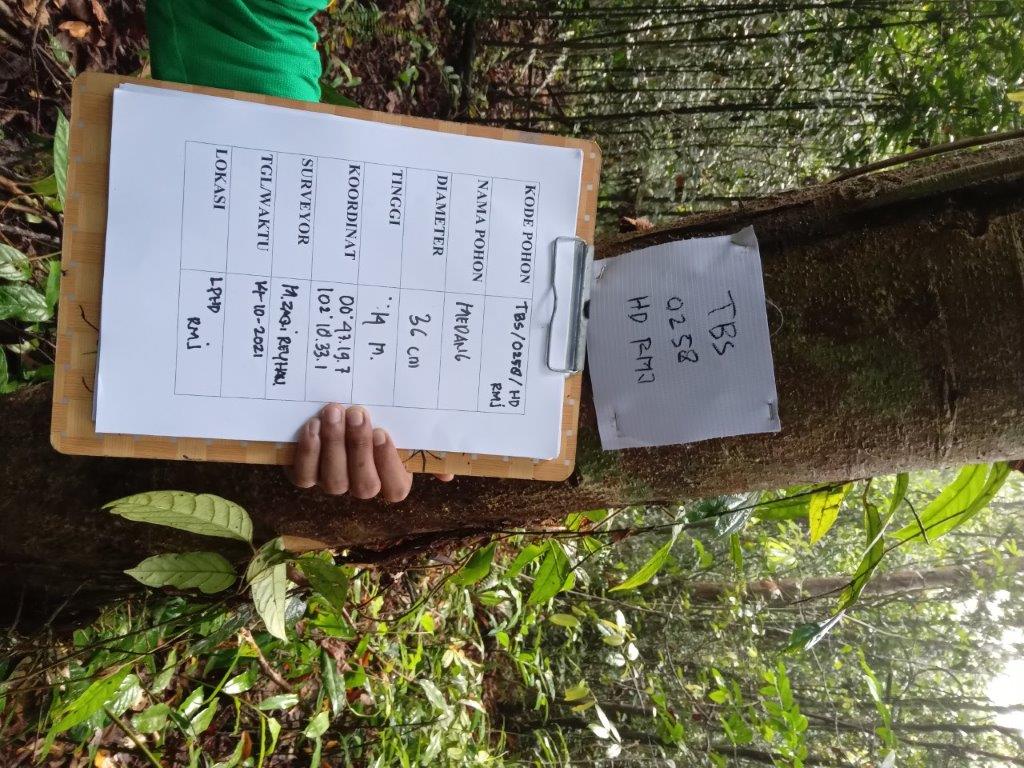 TBS
0258
HD RMJ
KODE POHON TBS/0258/HD
RMJ
NAMA POHON MEDANG
DIAMETER 36 cm
TINGGI 14 M.
KOORDINAT 00°47.19.7
102°10.33.1
SURVEYOR M.ZAQI REYHAN.
TGL/WAKTU 14-10-2021
LOKASI LPHD
RMJ